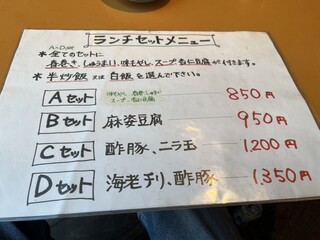 ランチセットメニュー
A〜Dまで
＊全てのセットに
春巻き、しゅうまい、味もやし、スープ、杏仁豆腐が付きます。
＊半炒飯又は白飯を選んで下さい。
Aセット 味もやし 春巻 しゅうまい 850円
スープ 杏仁豆腐
Bセット 麻婆豆腐 950円
Cセット 酢豚、ニラ玉 1200円
Dセット 海老チリ、酢豚 1,350円